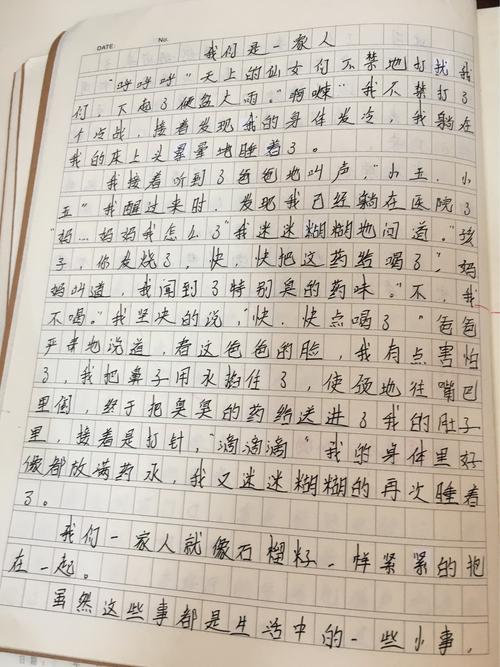 DATE: No.
我们是一家人
"呼呼呼"天上的仙女们不禁地打扰我
们，下起了倾盆大雨。"啊嗽"我不禁打了
个冷战，接着发现我的身体发冷，我躺在
我的床上头晕晕地睡着了。
我接着听到了爸爸地叫声，"小五，小
五"我醒过来时，发现我已经躺在医院了
"妈…妈妈我怎么了"我迷迷糊糊地问道。"孩
子，你发烧了，快，快把这药给喝了"，妈
妈叫道，我闻到了特别臭的药味。"不，我
不喝。"我坚决的说，"快，快点喝了"爸爸
严肃地说道，看这爸爸的脸，我有点害怕
了，我把鼻子用水掐住了，使颈地往嘴巴
里倒，终于把臭臭的药给送进了我的肚子
里，接着是打针，"滴滴滴"我的身体里好
像都放满药水，我又迷迷糊糊的再次睡着
了。
我们一家人就像石榴籽一样紧紧的抱
在一起。
虽然这些事都是生活中的一些小事，
日期：